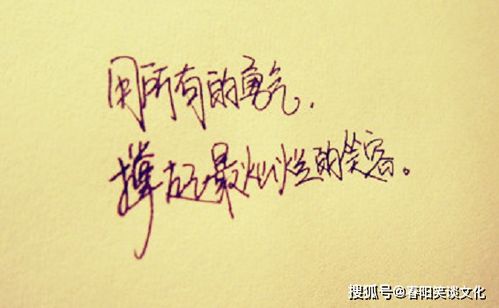 用所有的勇气.
撑起最灿烂的笑容。
搜狐号@春阳笑谈文化